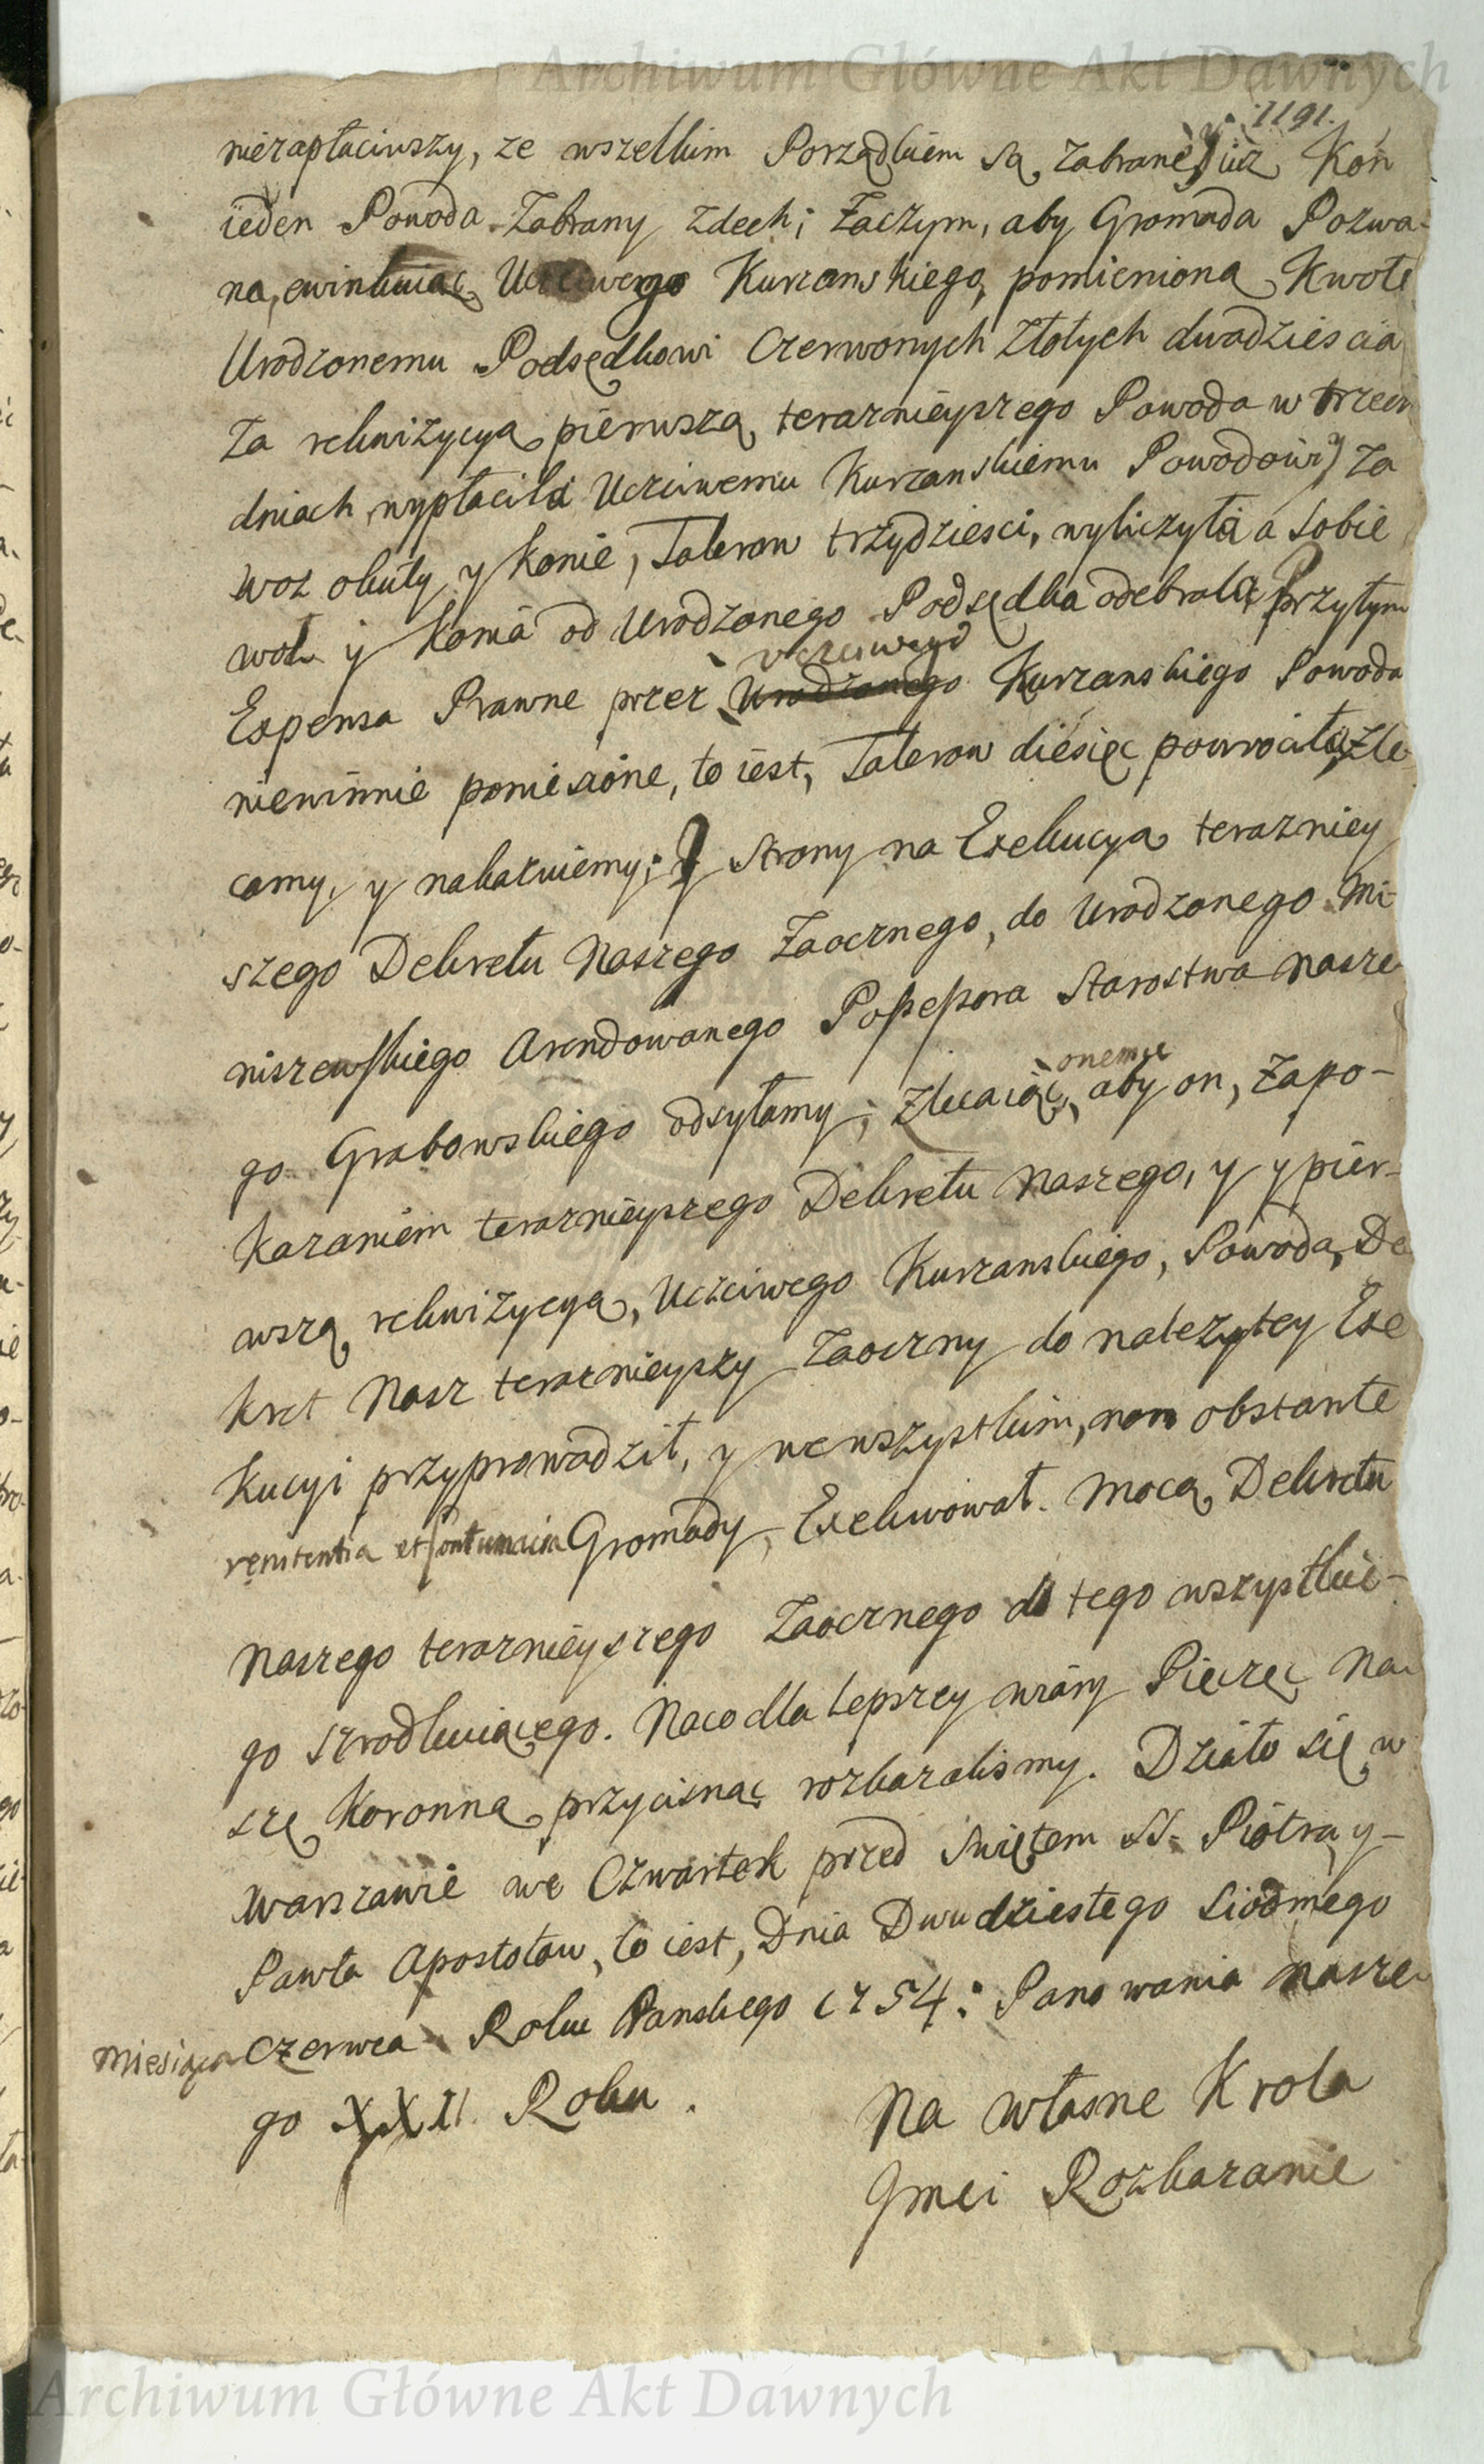 Archiwum Główne Akt Dawnych
1191.
niezapłaciwszy, ze wszelkim Porządkiem są zabrane, y iuż Kon
ieden Powoda zabrany zdech; Zaczym, aby Gromada Pozwa-
na, ewinkuiąc Uczciwego Kurzanskiego, pomienioną Kwotę
Urodzonemu Podsędkowi Czerwonych Złotych dwadziescia
za rekwizycyą pierwszą, teraznieyszego Powoda w trzech
dniach wypłaciła Uczciwemu Kurzanskiemu Powodowi, za
woz okuty y Konie, Talerow trzydziesci, wyliczyła a sobie
woł y Konia od Urodzonego Podsędka odebrała, Przytym
uczciwego
Expensa Prawne przez Urodzonego Kurzanskiego Powoda
niewinnie poniesione, to iest, Talerow diesięc powrociła, Zle
camy, y nakazuiemy; y Strony na Exekucyą terazniey
szego Dekretu Naszego Zaocznego, do Urodzonego Mi-
niszewskiego Arendowanego Possessora Starostwa Nasze
go Grabowskiego odsyłamy; Zlecaiąc, aby on, za po-
onemu
Kazaniem teraznieyszego Dekretu Naszego, y y pier-
wszą rekwizycyą, Uczciwego Kurzanskiego, Powoda, De
kret Nasz teraznieyszy Zaoczny do nalezytey Exe
Kucyi przyprowadził, y we wszystkim, non obstante
renitentia et contumacia Gromady, Exekwował. Mocą Dekretu
Naszego teraznieyszego Zaocznego do tego wszystkie-
go szrodkuiącego. Naco dla lepszey wiary Pieczęc Na
szę Koronną przycisnąc rozkazalismy. Działo się w
Warszawie we Czwartek przed Swiętem SS. Piotra y
Pawła Apostołow, to iest, Dnia Dwudziestego Siodmego
Miesiąca Czerwca Roku Panskiego 1754: Panowania nasze
go XXI. Roku.
Na własne Krola
Jmci Rozkazanie
Archiwum Główne Akt Dawnych